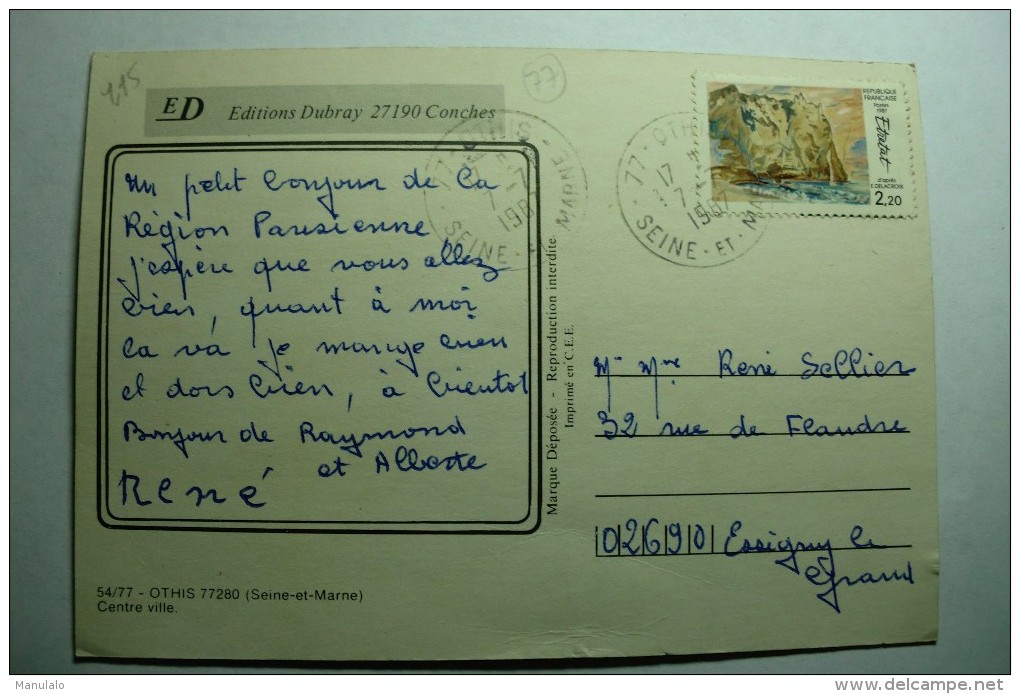 215
77
ED Editions Dubray 27190 Conches
Un petit bonjour de la
Région Parisienne
j'espère que vous allez
bien, quant à moi
ça va je mange bien
et dors bien, à bientot
Bonjour de Raymond
et Alberte
René
54/77 - OTHIS 77280 (Seine-et-Marne)
Centre ville.
Marque Déposée - Reproduction interdite.
Imprimé en C.E.E.
77 - OTHIS
17
7
1987
SEINE - ET - MARNE
77 - OTHIS
17
7
1987
SEINE - ET - MA
REPUBLIQUE
FRANÇAISE
Postes
1987
Etretat
d'après
E. DELACROIX
2,20
Mr Mme René Sellier
32 rue de Flandre
02690 Essigny le
Grand
Manulalo
delcampe.net